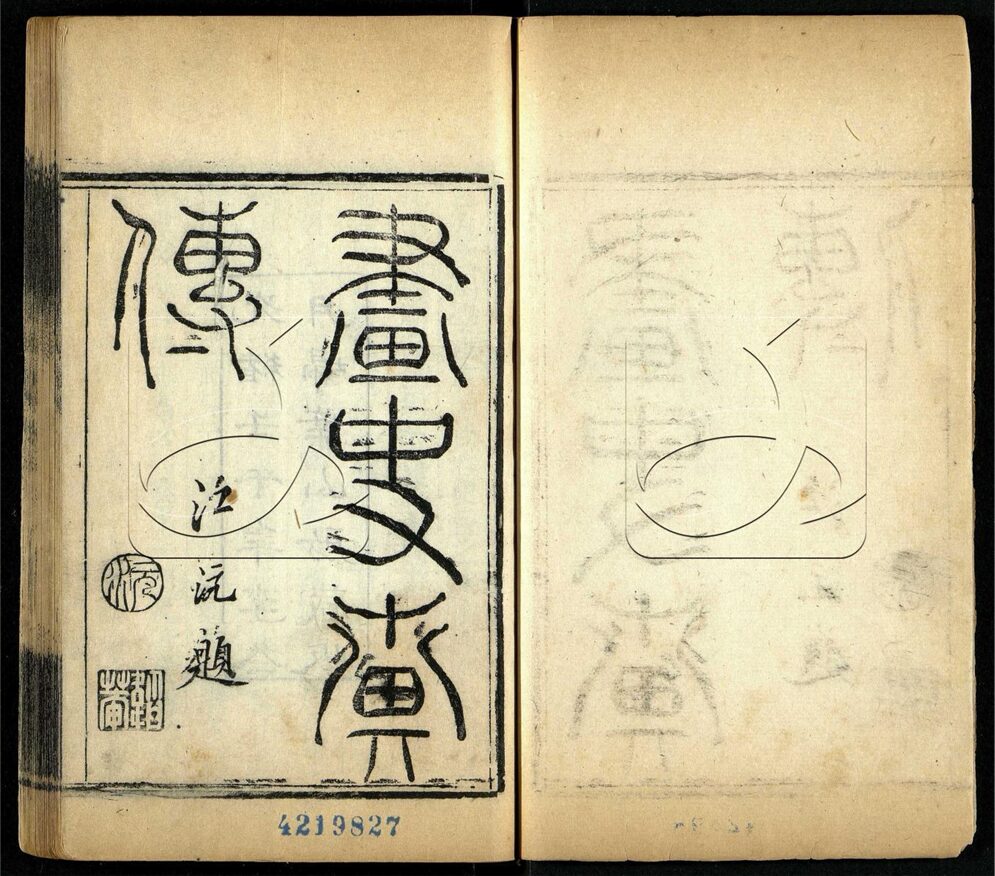 畫史彙
傳
江沅題
沅
4219827